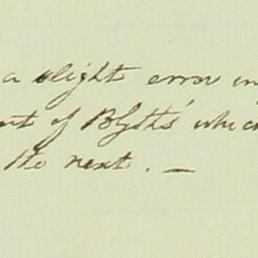 a slight error in
of Blyth's whic
the next. —